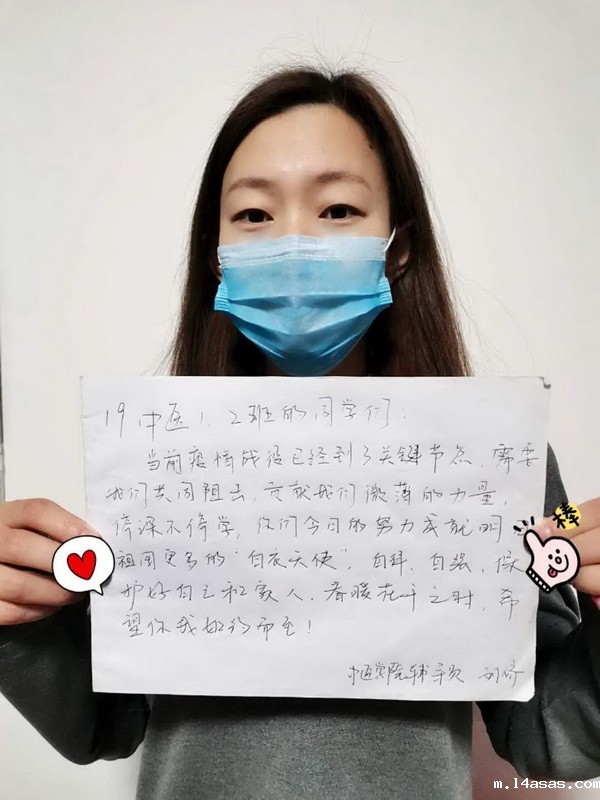 19中医1、2班的同学们：
当前疫情战役已经到了关键节点，需要
我们共同阻击，贡献我们微薄的力量，
停课不停学，你们今日的努力成就明
祖国更多的“白衣天使”，自律，自强，保
护好自己和家人，春暖花开之时，希
望你我如约而至！
中医学院辅导员 刘娇
棒
m.14asas.com